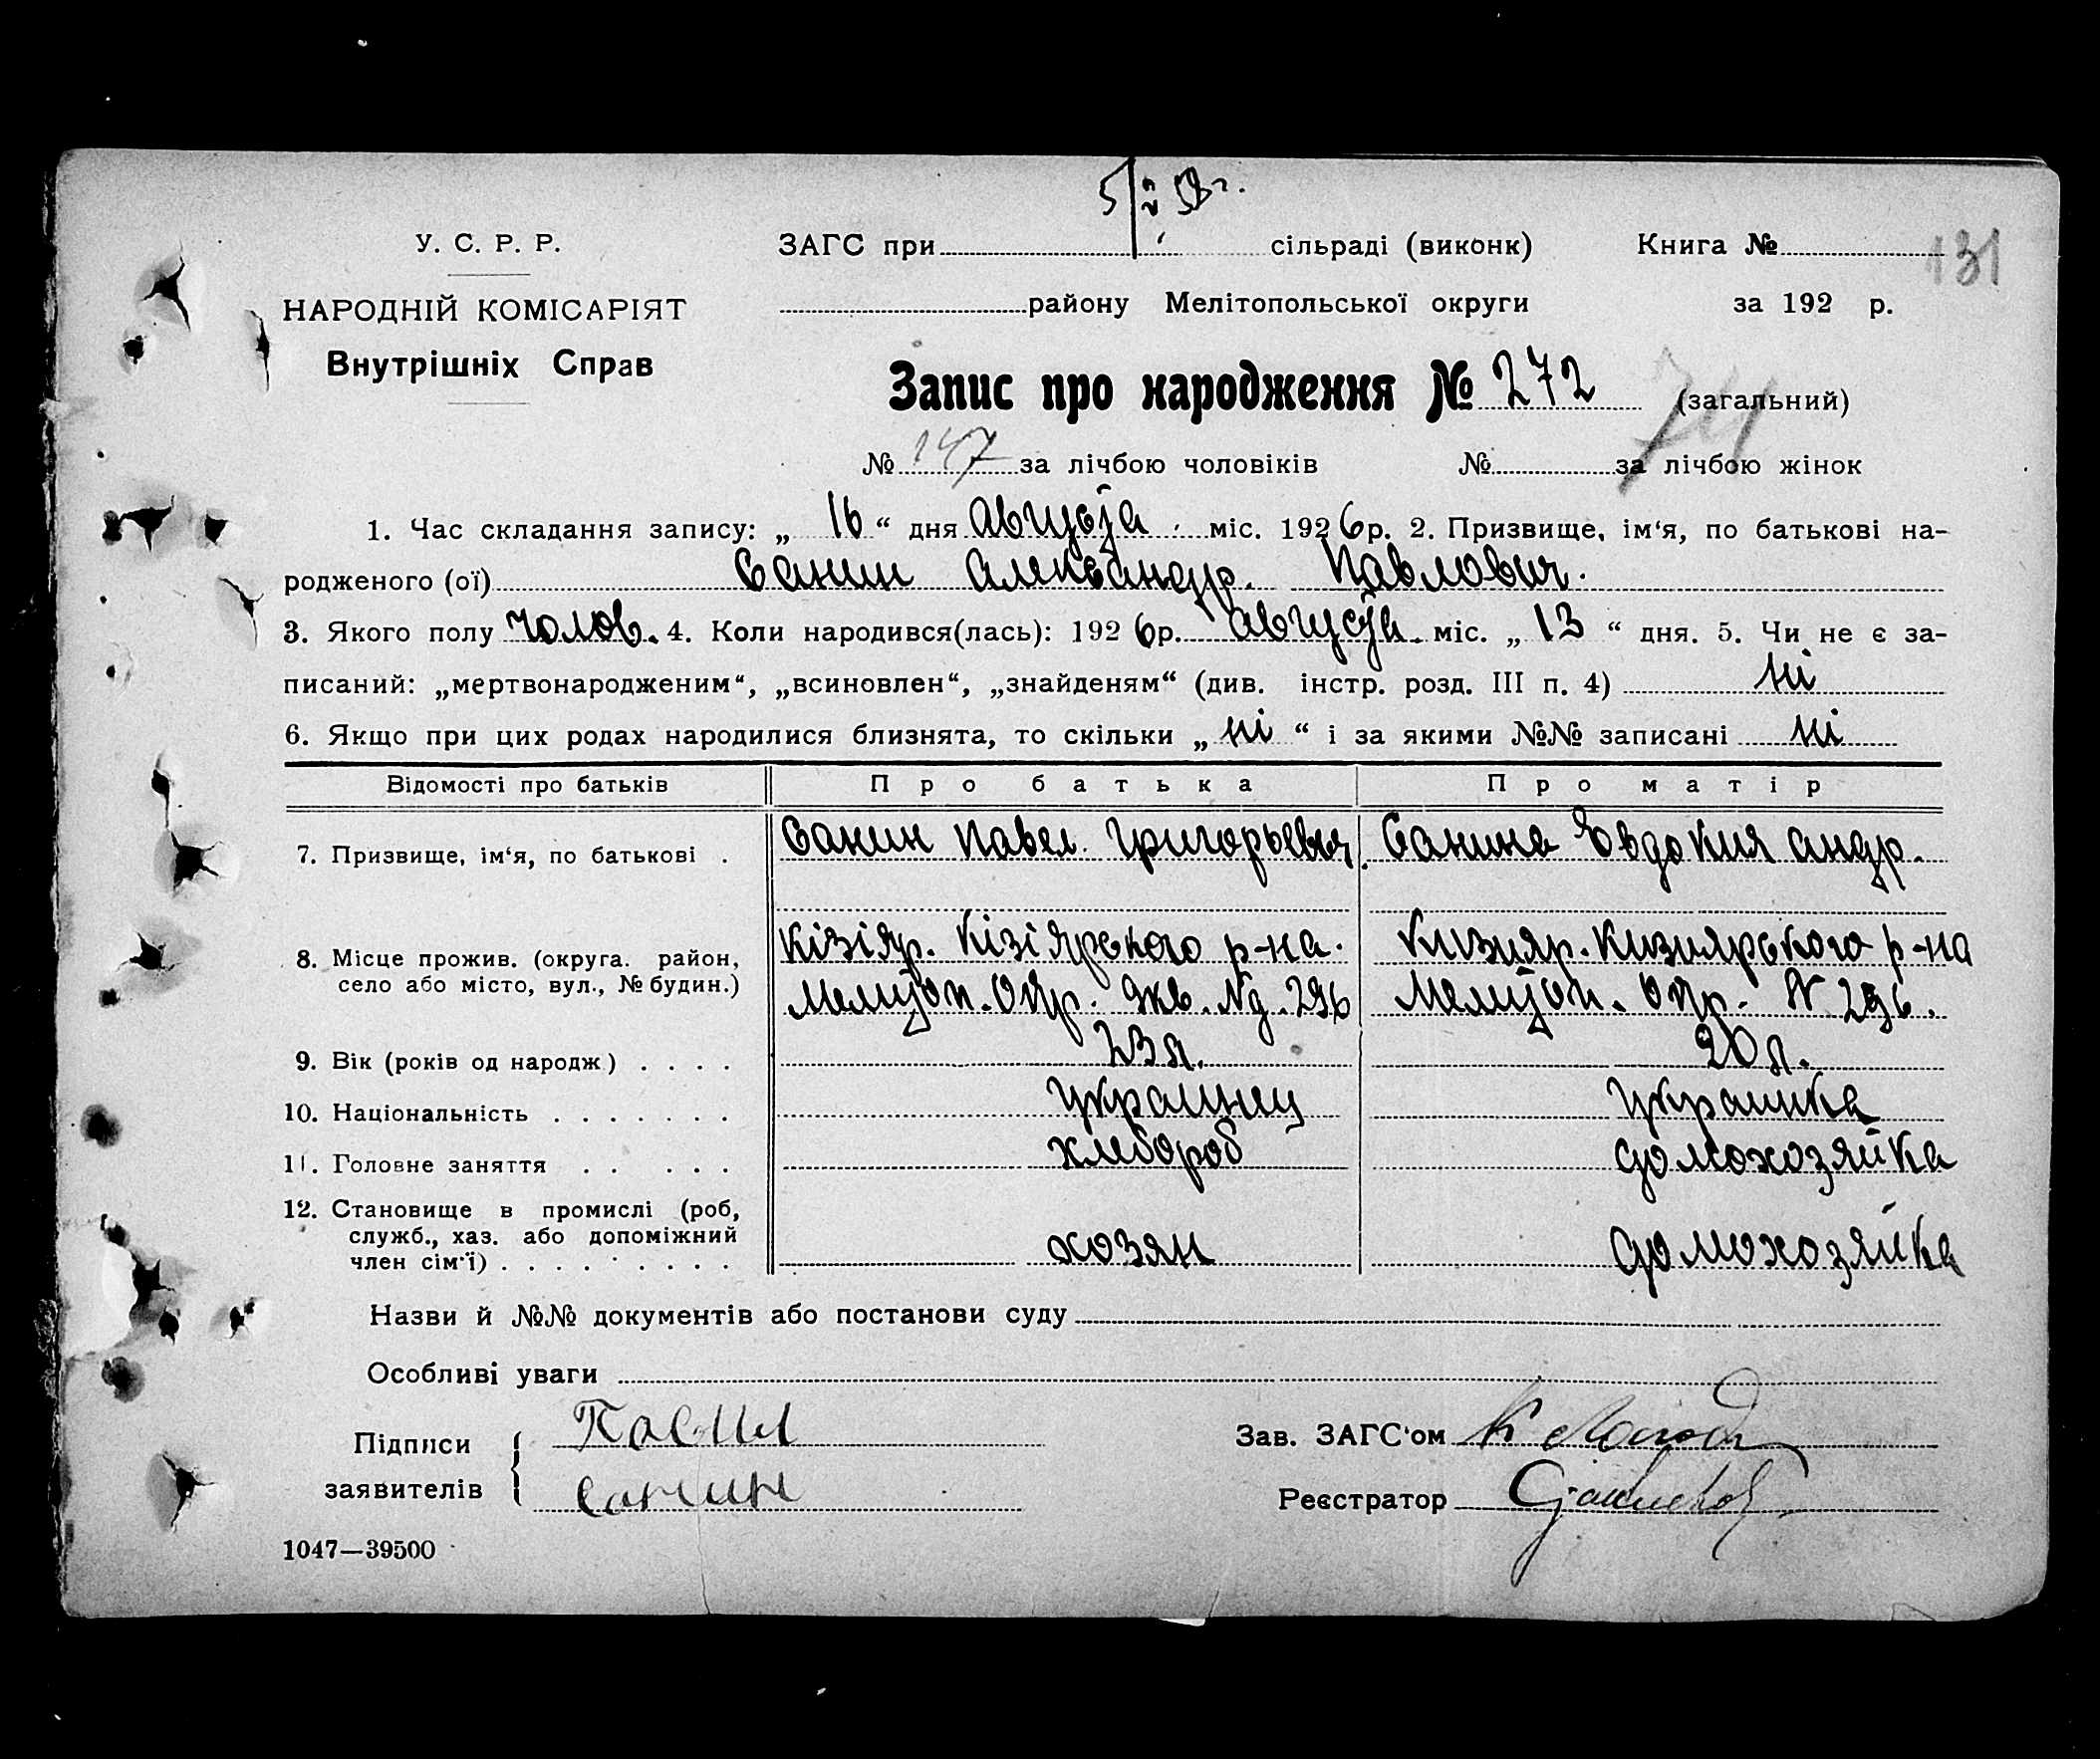 У. С. Р. Р.
НАРОДНІЙ КОМІСАРІЯТ
Внутрішніх Справ
ЗАГС при сільраді (виконк) Книга № 131
району Мелітопольської округи за 192 р.
Запис про народження № 272 (загальний)
№ 147 за лічбою чоловіків № за лічбою жінок
1. Час складання запису: „ 16 “ дня августа міс. 1926 р. 2. Призвище, ім‘я, по батькові на-
родженого (ої) Санин Александр. Павлович.
3. Якого полу чолов. 4. Коли народився(лась): 1926 р. август. міс. „ 13 “ дня. 5. Чи не є за-
писаний: „мертвонародженим“, „всиновлен“, „знайденям“ (див. інстр. розд. III п. 4) ні
6. Якщо при цих родах народилися близнята, то скільки „ ні “ і за якими №№ записані ні
Відомості про батьків Про батька Про матір
7. Призвище, ім‘я, по батькові . Санин Павел. Григорьевич Санина Евдокия андр.
8. Місце прожив. (округа. район, Кізіяр. Кізіярского р-на. Кизияр. Кизиярского р-на
село або місто, вул., № будин.) Мелитоп. Окр. № д. 296 Мелитоп. Окр. № 296.
9. Вік (років од народж) . . . . 23 л. 20 л.
10. Національність . . . . . . . украинец украинка
11. Головне заняття . . . . . хлебороб домохозяйка
12. Становище в промислі (роб,
служб., хаз. або допоміжний
член сім‘ї) . . . . . . . . . хозяин домохозяйка
Назви й №№ документів або постанови суду
Особливі уваги
Підписи
заявителів Санин
Зав. ЗАГС‘ом
Реєстратор
1047—39500